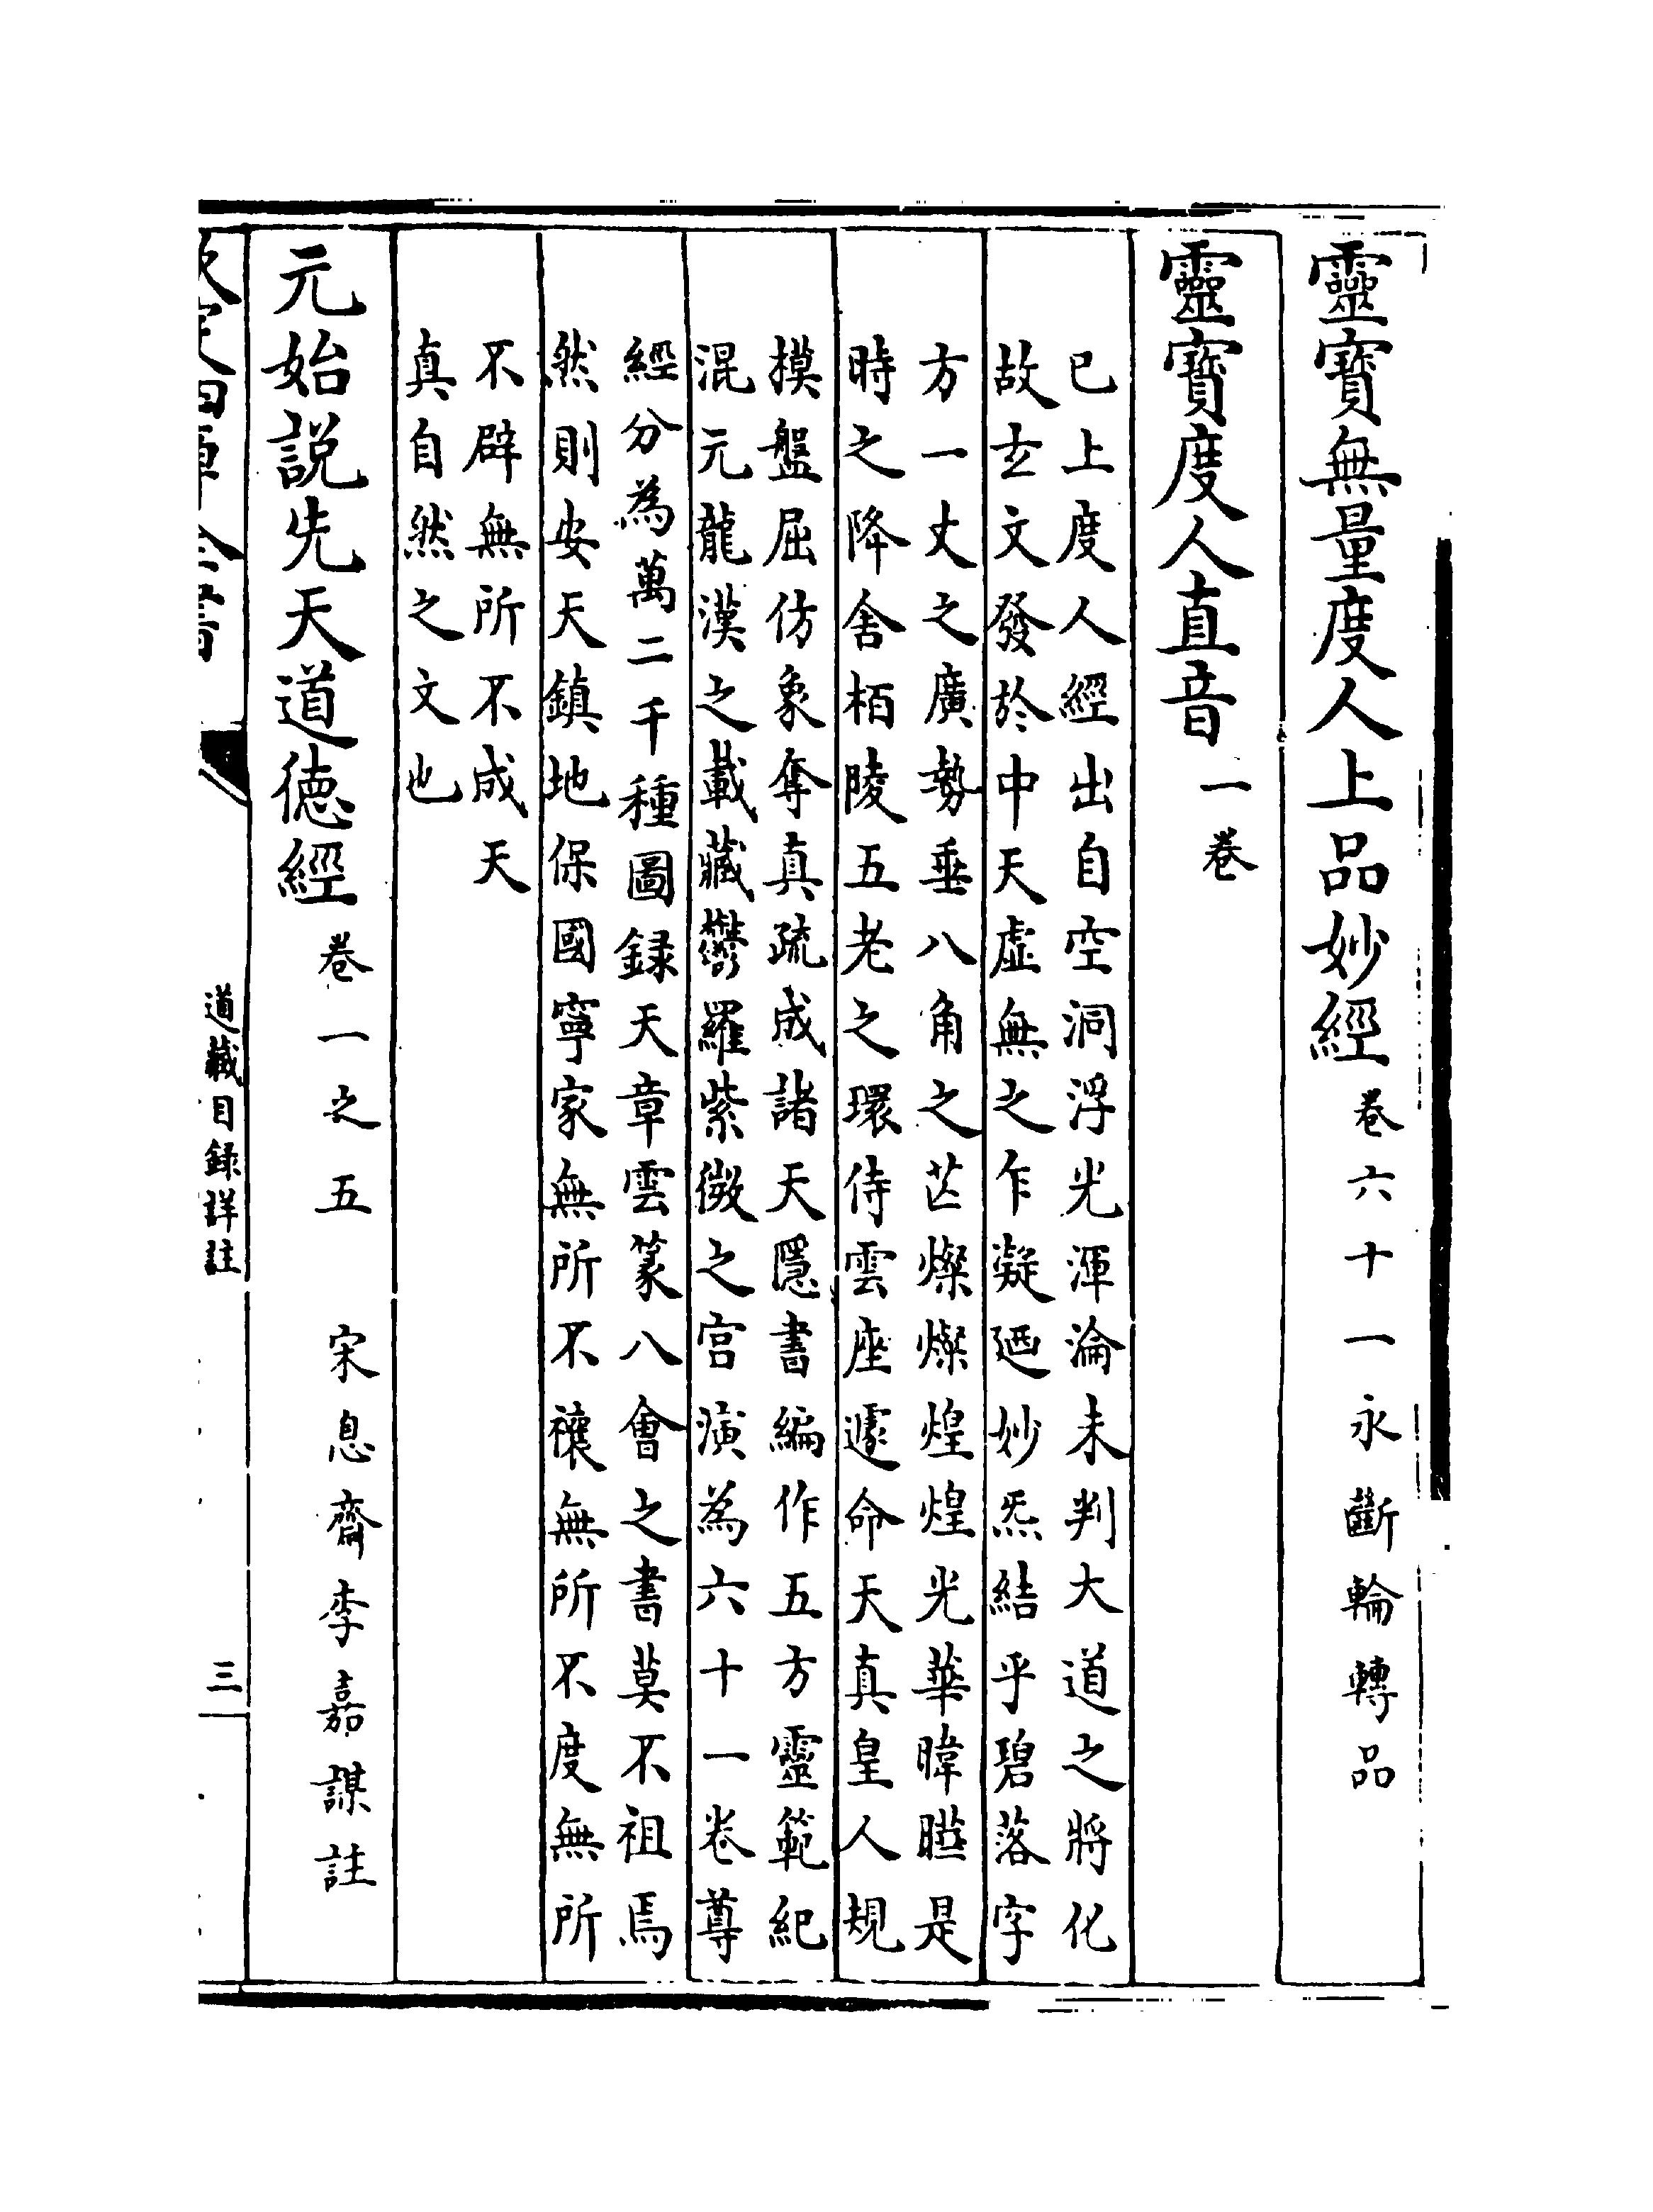 靈寳無量度人上品妙經卷六十一永斷輪轉品
靈寳度人直音一卷
已上度人經出自空洞浮光渾淪未判大道之將化
故玄文發於中天虛無之乍凝廼妙炁結乎碧落字
方一丈之廣勢垂八角之芒燦燦煌煌光華暐曄是
時之降舍栢陵五老之環侍雲座遽命天真皇人規
摸盤屈仿象奪真疏成諸天隱書編作五方靈範紀
混元龍漢之載藏鬱羅紫微之宫演為六十一卷尊
經分為萬二千種圖録天章雲篆八會之書莫不祖焉
然則安天鎮地保國寧家無所不禳無所不度無所
不辟無所不成天
真自然之文也
元始説先天道徳經卷一之五 宋息齋李嘉謀註
欽定四庫全書
道藏目録詳註
三